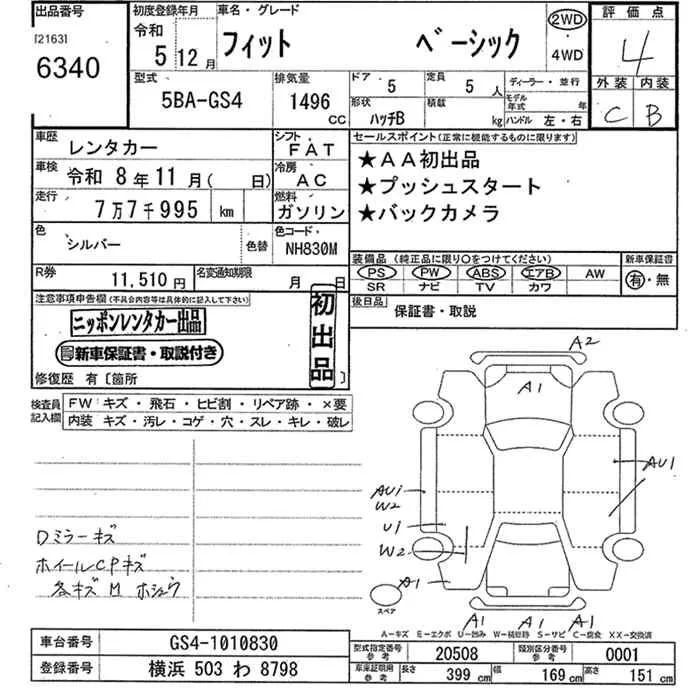 出品番号
[2163]
6340
初度登録年月
令和
5年12月
車名・グレード
フィット ベーシック
2WD
・
4WD
評価点
4
外装 内装
C B
型式
5BA-GS4
排気量
1496 CC
ドア 5
定員 5 人
ディーラー・並行
形状 ハッチB
積載 kg
モデル年式 年
ハンドル 左・右
車歴 レンタカー
シフト FAT
車検 令和 8年11月( 日)
冷房 AC
走行 7万7千995 km
燃料 ガソリン
色 シルバー
色替
色コード NH830M
R券 11,510円
名変通知期限 月 日
セールスポイント(正常に機能するものに限ります)
★AA初出品
★プッシュスタート
★バックカメラ
装備品 (純正品に限り○をつけてください)
PS PW ABS エアB AW
SR ナビ TV カワ
新車保証書
有・無
後日品 保証書・取説
注意事項申告欄(不具合内容等は具体的に記入して下さい)
ニッポンレンタカー出品
新車保証書・取説付き
初出品
修復歴 有〔箇所 〕
検査員記入欄
FW キズ・飛石・ヒビ割・リペア跡・×要
内装 キズ・汚レ・コゲ・穴・スレ・キレ・破レ
Dミラーキズ
ホイールCPキズ
各キズ M ホシュウ
A2
A1
AU1
AU1
W2
U1
W2
A1
スペア
A1 A1 A1
A-キズ E-エクボ U-凹み W-補修跡 S-サビ C-腐食 XX-交換済
車台番号 GS4-1010830
登録番号 横浜 503 わ 8798
型式指定番号 参考 20508
類別区分番号 参考 0001
車庫証明用 参考 長さ 399 cm 幅 169 cm 高さ 151 cm